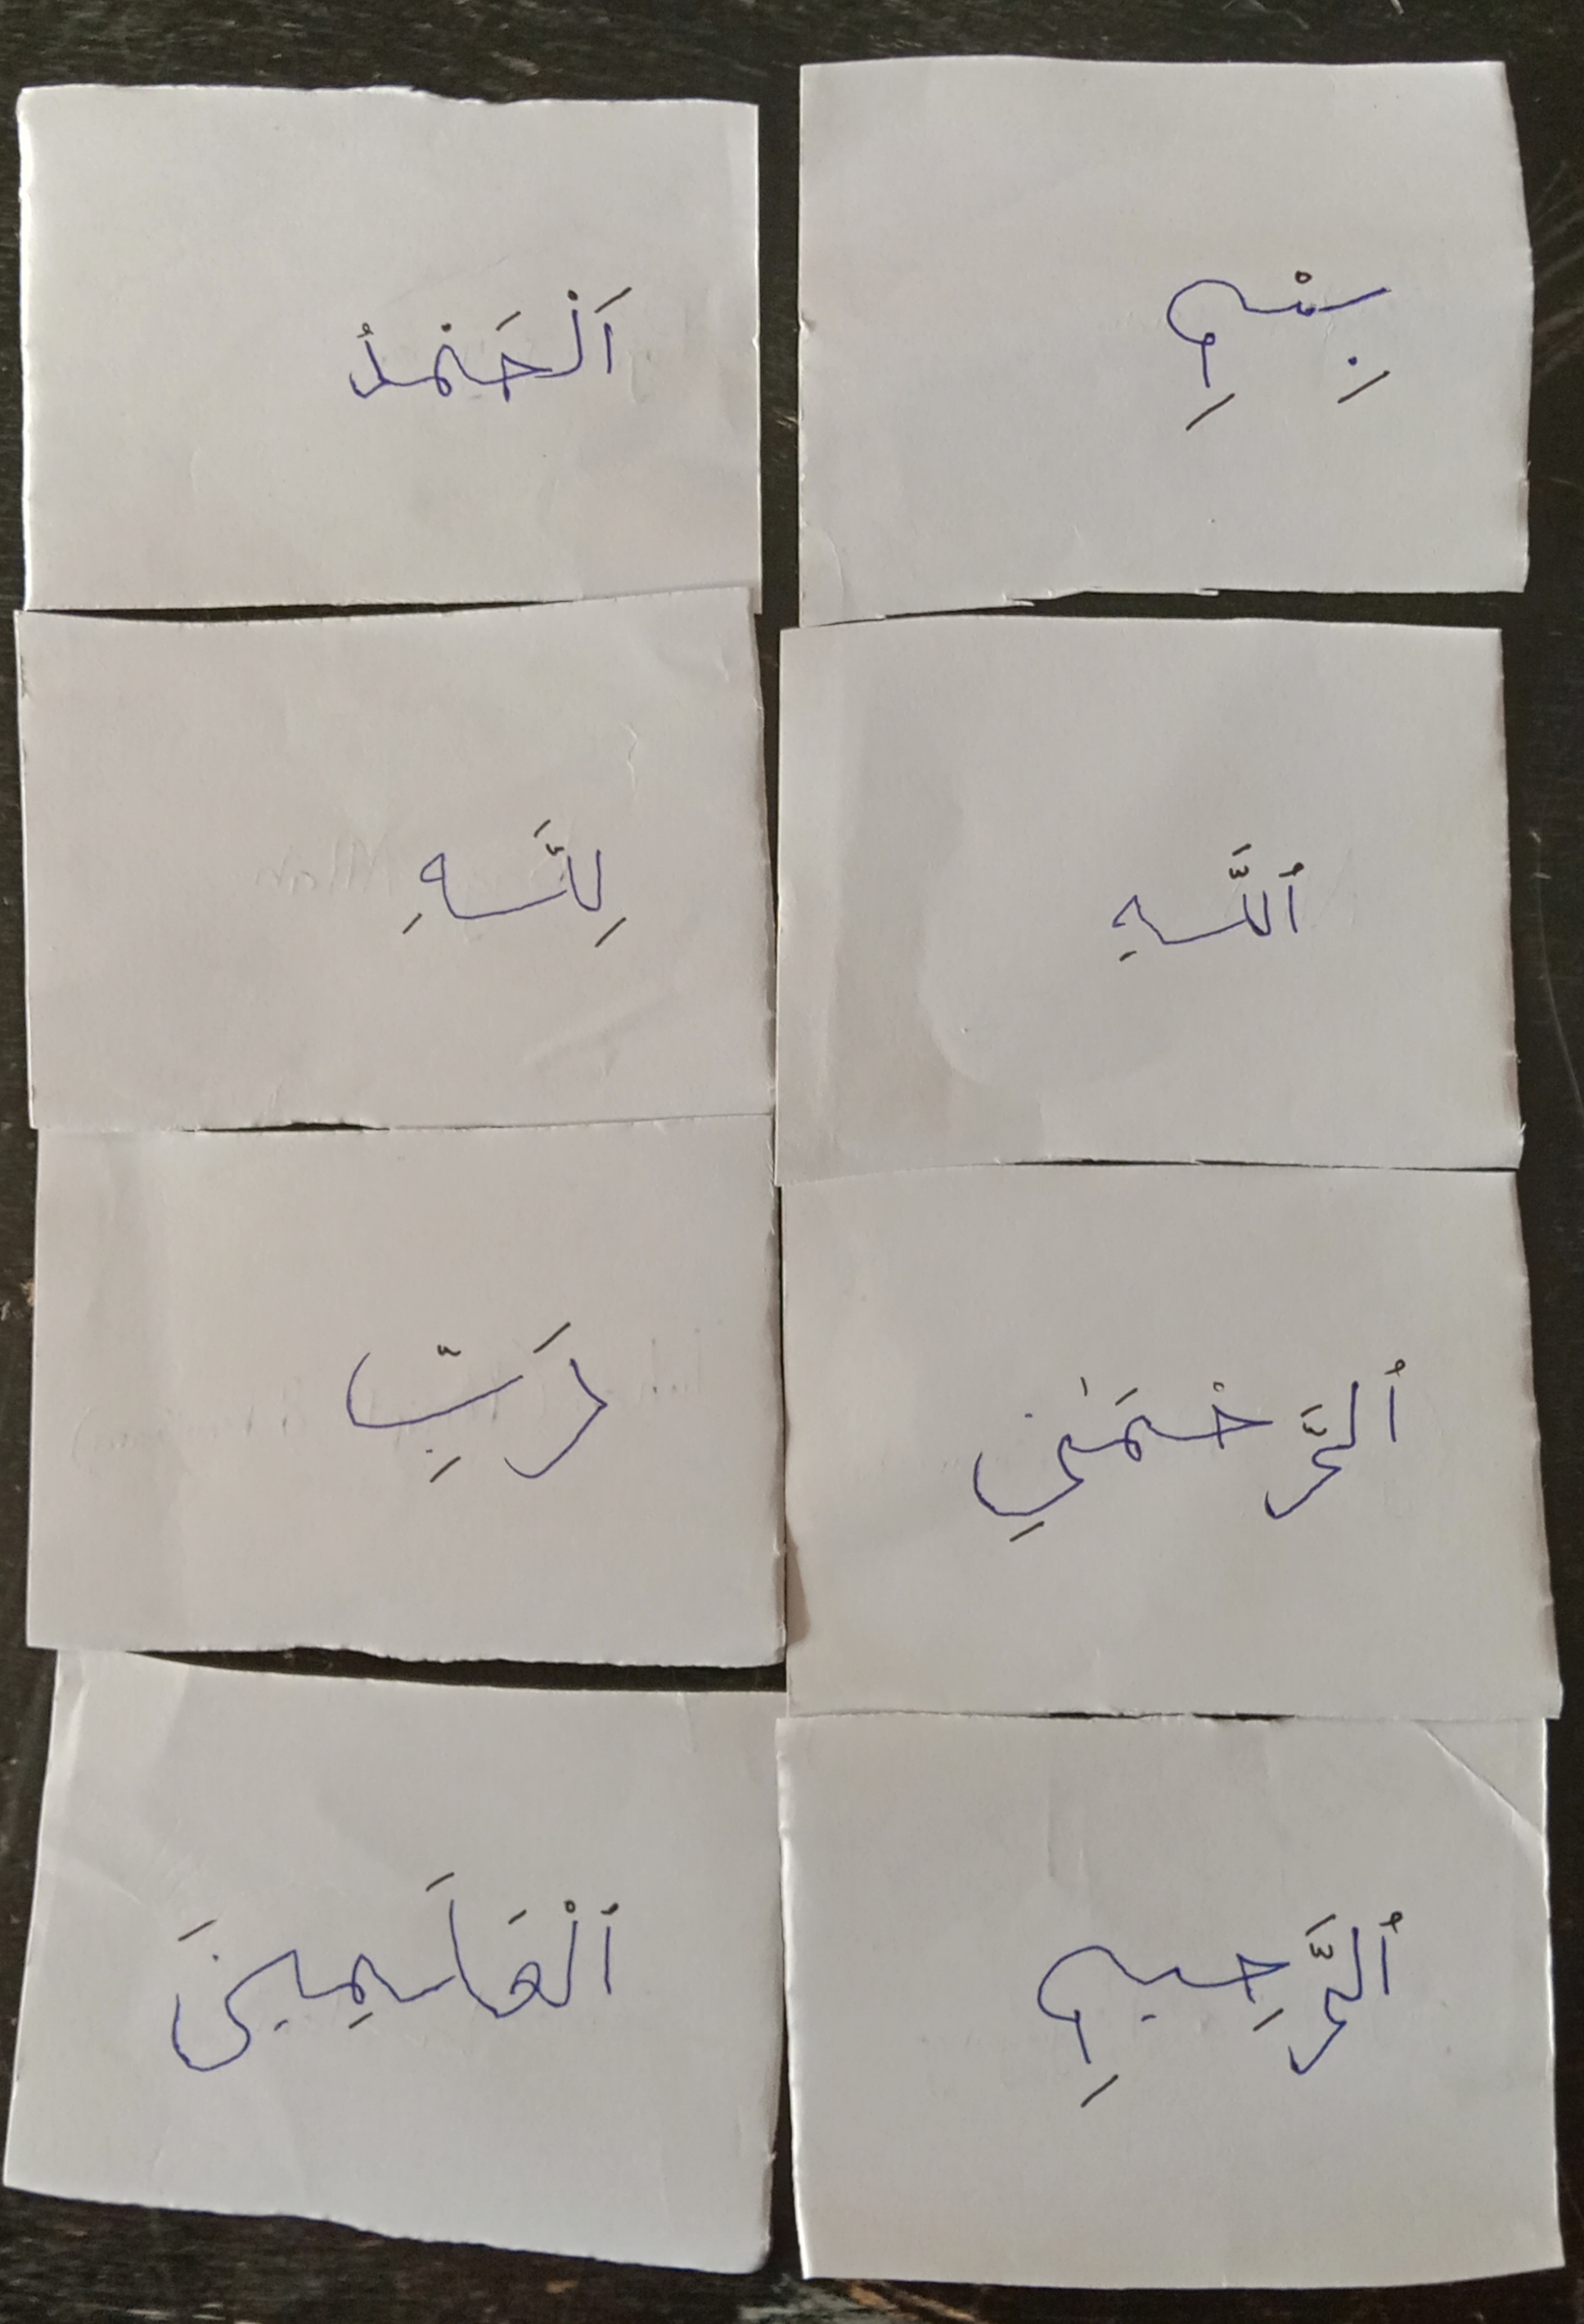 بِسْمِ
ٱللَّهِ
ٱلرَّحْمَٰنِ
ٱلرَّحِيمِ
اَلْحَمْدُ
لِلَّهِ
رَبِّ
ٱلْعَالَمِينَ